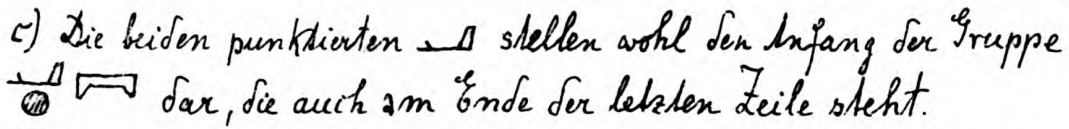 c) Die beiden punktierten stellen wohl den Anfang der Gruppe
dar, die auch am Ende der letzten Zeile steht.